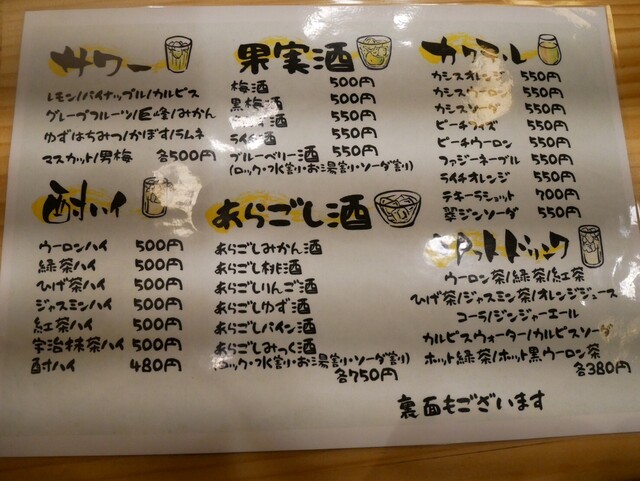 サワー
レモン/パイナップル/カルピス
グレープフルーツ/巨峰/みかん
ゆずはちみつ/かぼす/ラムネ
マスカット/男梅 各500円
酎ハイ
ウーロンハイ 500円
緑茶ハイ 500円
ひげ茶ハイ 500円
ジャスミンハイ 500円
紅茶ハイ 500円
宇治抹茶ハイ 500円
酎ハイ 480円
果実酒
梅酒 500円
黒梅酒 550円
酒 550円
ライチ酒 550円
ブルーベリー酒 550円
(ロック・水割り・お湯割り・ソーダ割り)
あらごし酒
あらごしみかん酒
あらごし桃酒
あらごしりんご酒
あらごしゆず酒
あらごしパイン酒
あらごしみっく酒
(ロック・水割り・お湯割り・ソーダ割り)
各750円
カクテル
カシスオレンジ 550円
カシスウーロン 550円
カシスソーダ 550円
ピーチフィズ 550円
ピーチウーロン 550円
ファジーネーブル 550円
ライチオレンジ 550円
テキーラショット 700円
翠ジンソーダ 550円
ソフトドリンク
ウーロン茶/緑茶/紅茶
ひげ茶/ジャスミン茶/オレンジジュース
コーラ/ジンジャーエール
カルピスウォーター/カルピスソーダ
ホット緑茶/ホット黒ウーロン茶
各380円
裏面もございます